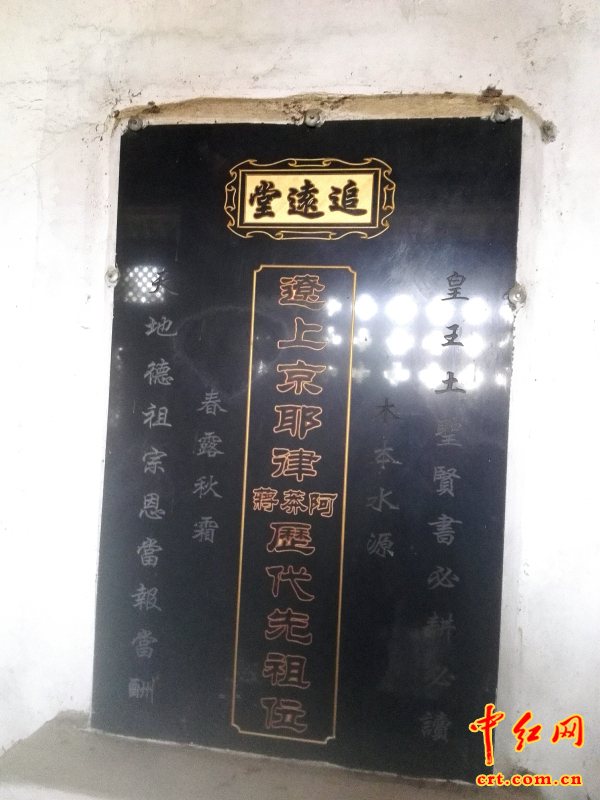 追遠堂
皇王土聖賢書必耕必讀
木本水源
遼上京耶律阿莽蔣歷代先祖位
春露秋霜
天地德祖宗恩當報當酬
中红网
crt.com.cn